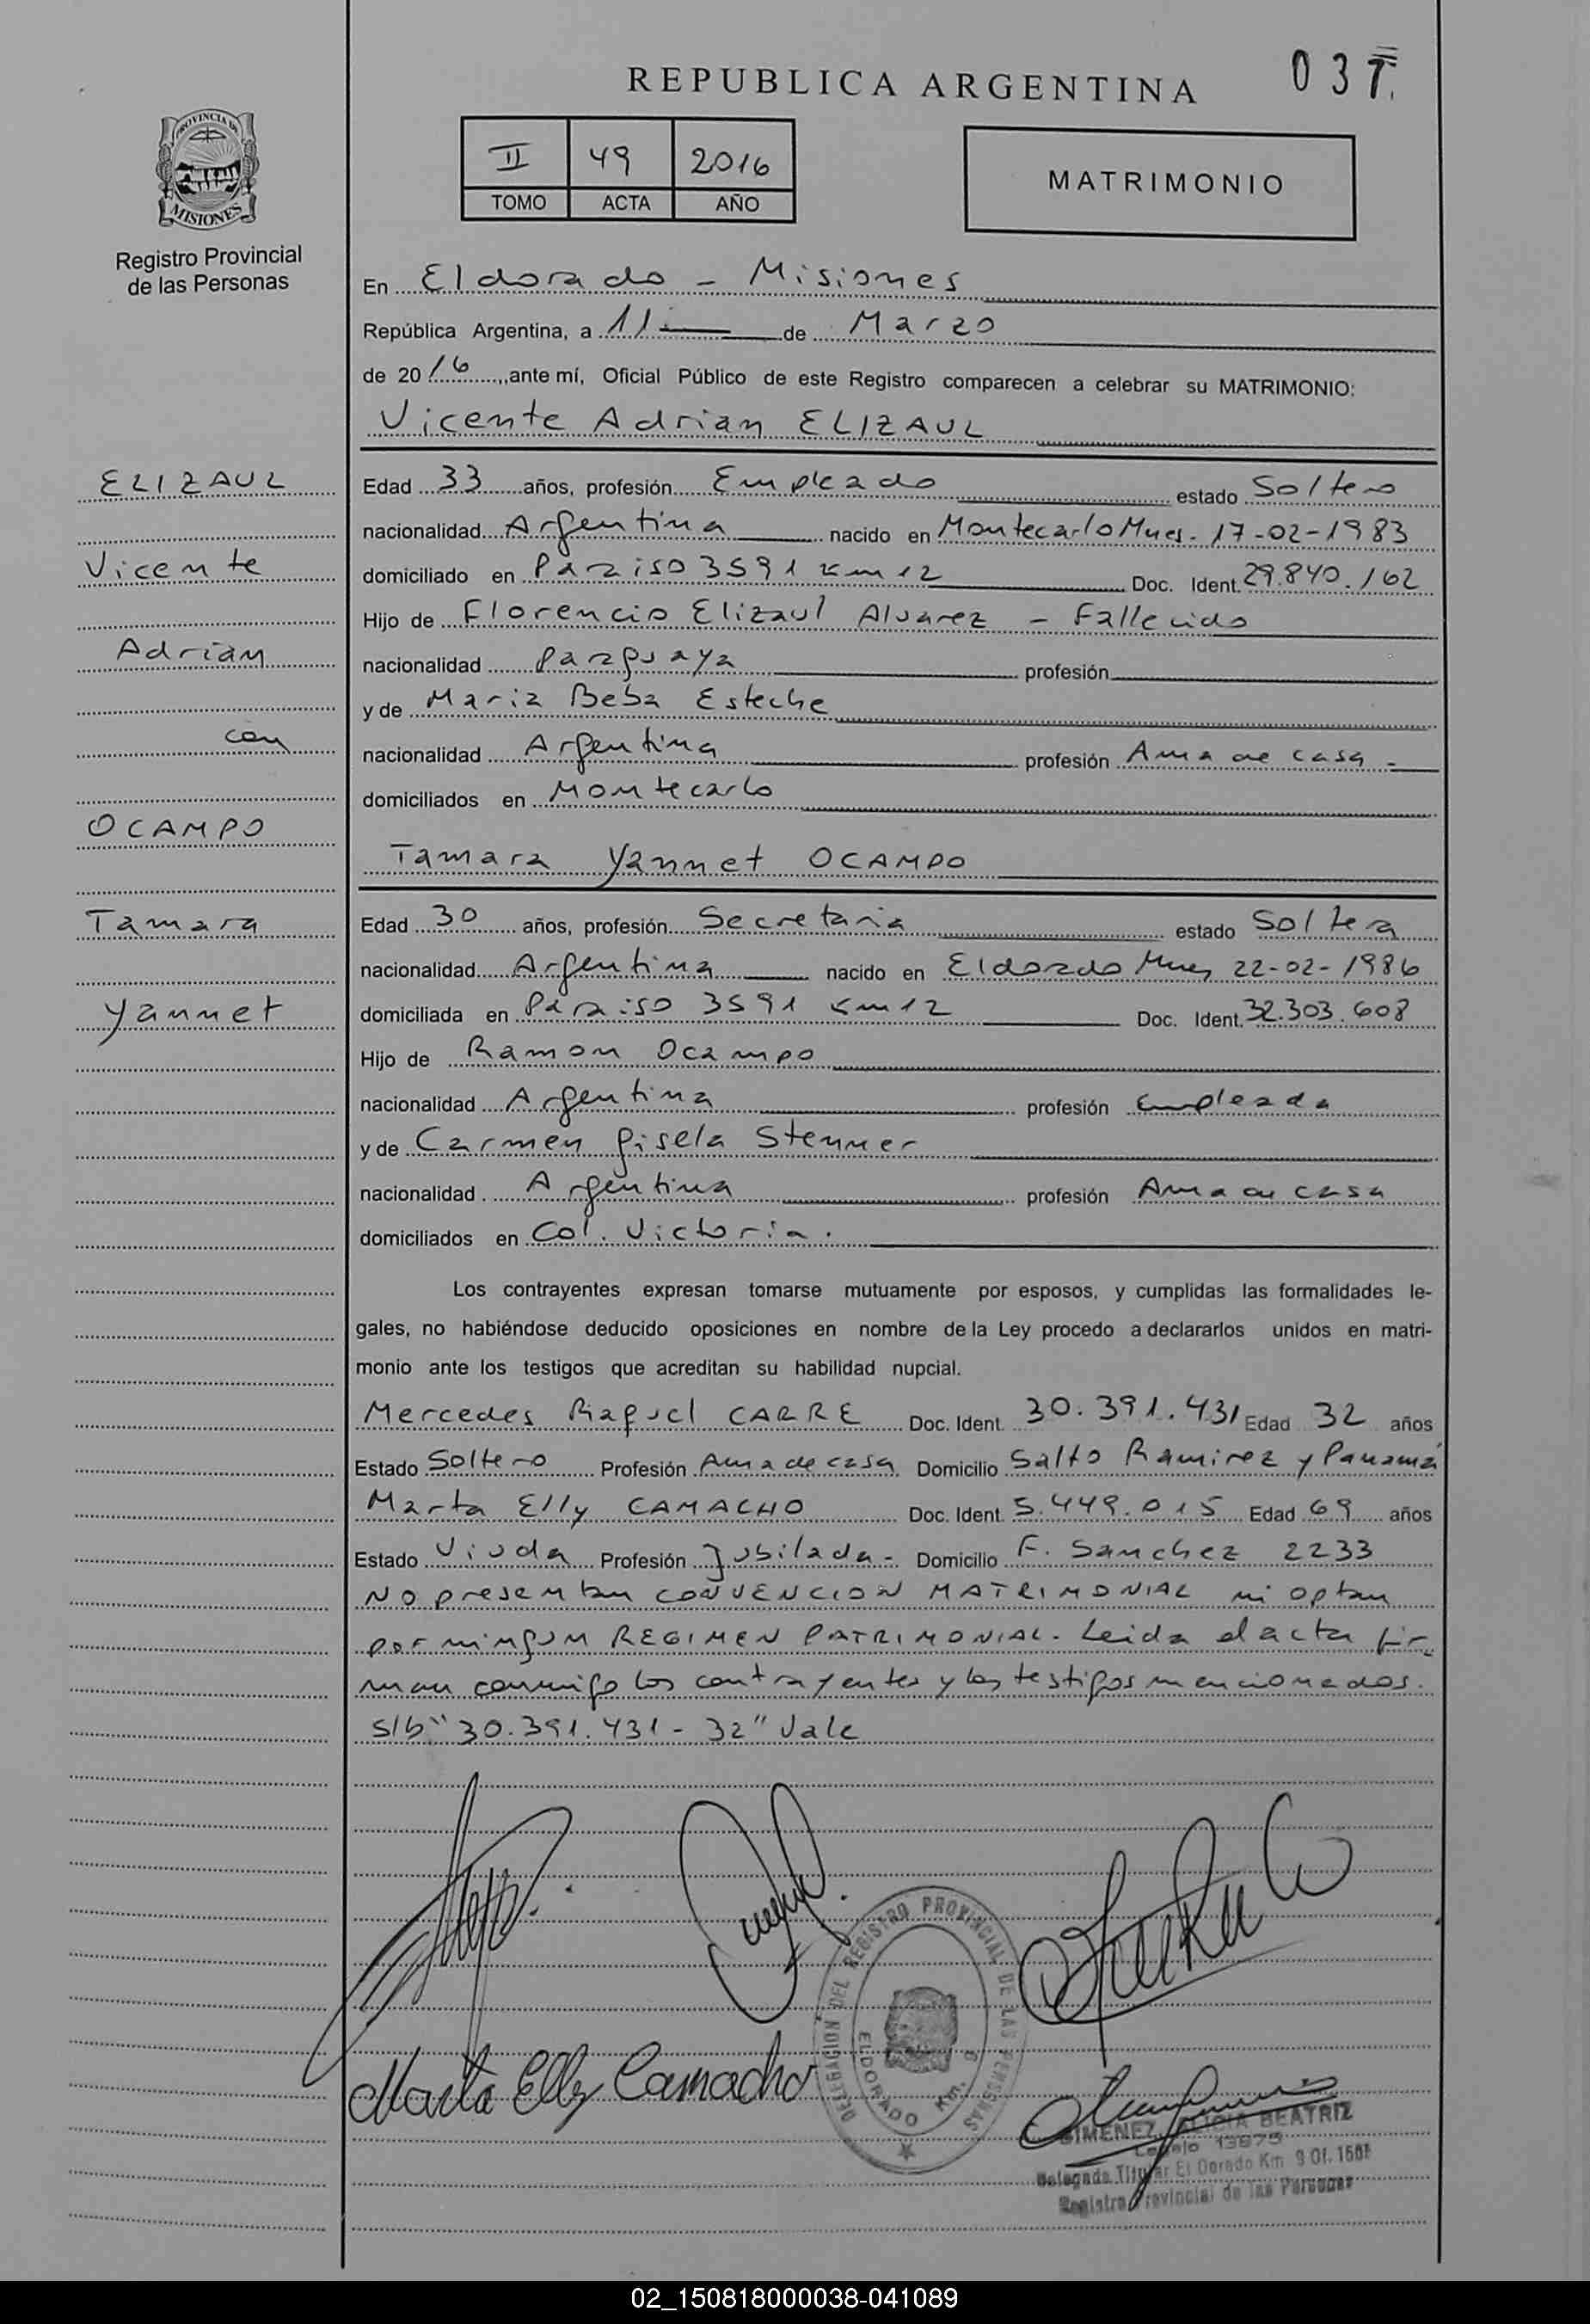 037
REPUBLICA ARGENTINA
II 49 2016
TOMO ACTA AÑO
MATRIMONIO
PROVINCIA DE
MISIONES
Registro Provincial
de las Personas
En Eldorado - Misiones
República Argentina, a 11 de Marzo
de 2016, ante mí, Oficial Público de este Registro comparecen a celebrar su MATRIMONIO:
Vicente Adrian ELIZAUL
ELIZAUL
Vicente
Adrian
con
OCAMPO
Tamara
Yannet
Edad 33 años, profesión Empleado estado Soltero
nacionalidad Argentina nacido en Montecarlo Mnes. 17-02-1983
domiciliado en Paraiso 3591 Km 12 Doc. Ident. 29.840.162
Hijo de Florencio Elizaul Alvarez - Fallecido
nacionalidad Paraguaya profesión
y de Maria Beba Esteche
nacionalidad Argentina profesión Ama de casa -
domiciliados en Montecarlo
Tamara Yannet OCAMPO
Edad 30 años, profesión Secretaria estado Soltera
nacionalidad Argentina nacido en Eldorado Mnes 22-02-1986
domiciliada en Paraiso 3591 Km 12 Doc. Ident. 32.303.608
Hijo de Ramon Ocampo
nacionalidad Argentina profesión Empleada
y de Carmen Gisela Stenner
nacionalidad Argentina profesión Ama de casa
domiciliados en Col. Victoria.
Los contrayentes expresan tomarse mutuamente por esposos, y cumplidas las formalidades le-
gales, no habiéndose deducido oposiciones en nombre de la Ley procedo a declararlos unidos en matri-
monio ante los testigos que acreditan su habilidad nupcial.
Mercedes Raquel CARRE Doc. Ident. 30.391.431 Edad 32 años
Estado Soltero Profesión Ama de casa Domicilio Salto Ramirez y Panamá
Marta Elly CAMACHO Doc. Ident. 5.449.015 Edad 69 años
Estado Viuda Profesión Jubilada - Domicilio F. Sanchez 2233
No presentan CONVENCION MATRIMONIAL ni optan
por ningun REGIMEN PATRIMONIAL. Leida el acta fir-
man conmigo los contrayentes y los testigos mencionados.
S/b "30.391.431 - 32" Vale
Marta Elly Camacho
DELEGACION DEL REGISTRO PROVINCIAL DE LAS PERSONAS
ELDORADO Km. 9
GIMENEZ, ALICIA BEATRIZ
Legajo 13975
Delegada Titular El Dorado Km 9 Of.
Registro Provincial de las Personas
02_150818000038-041089